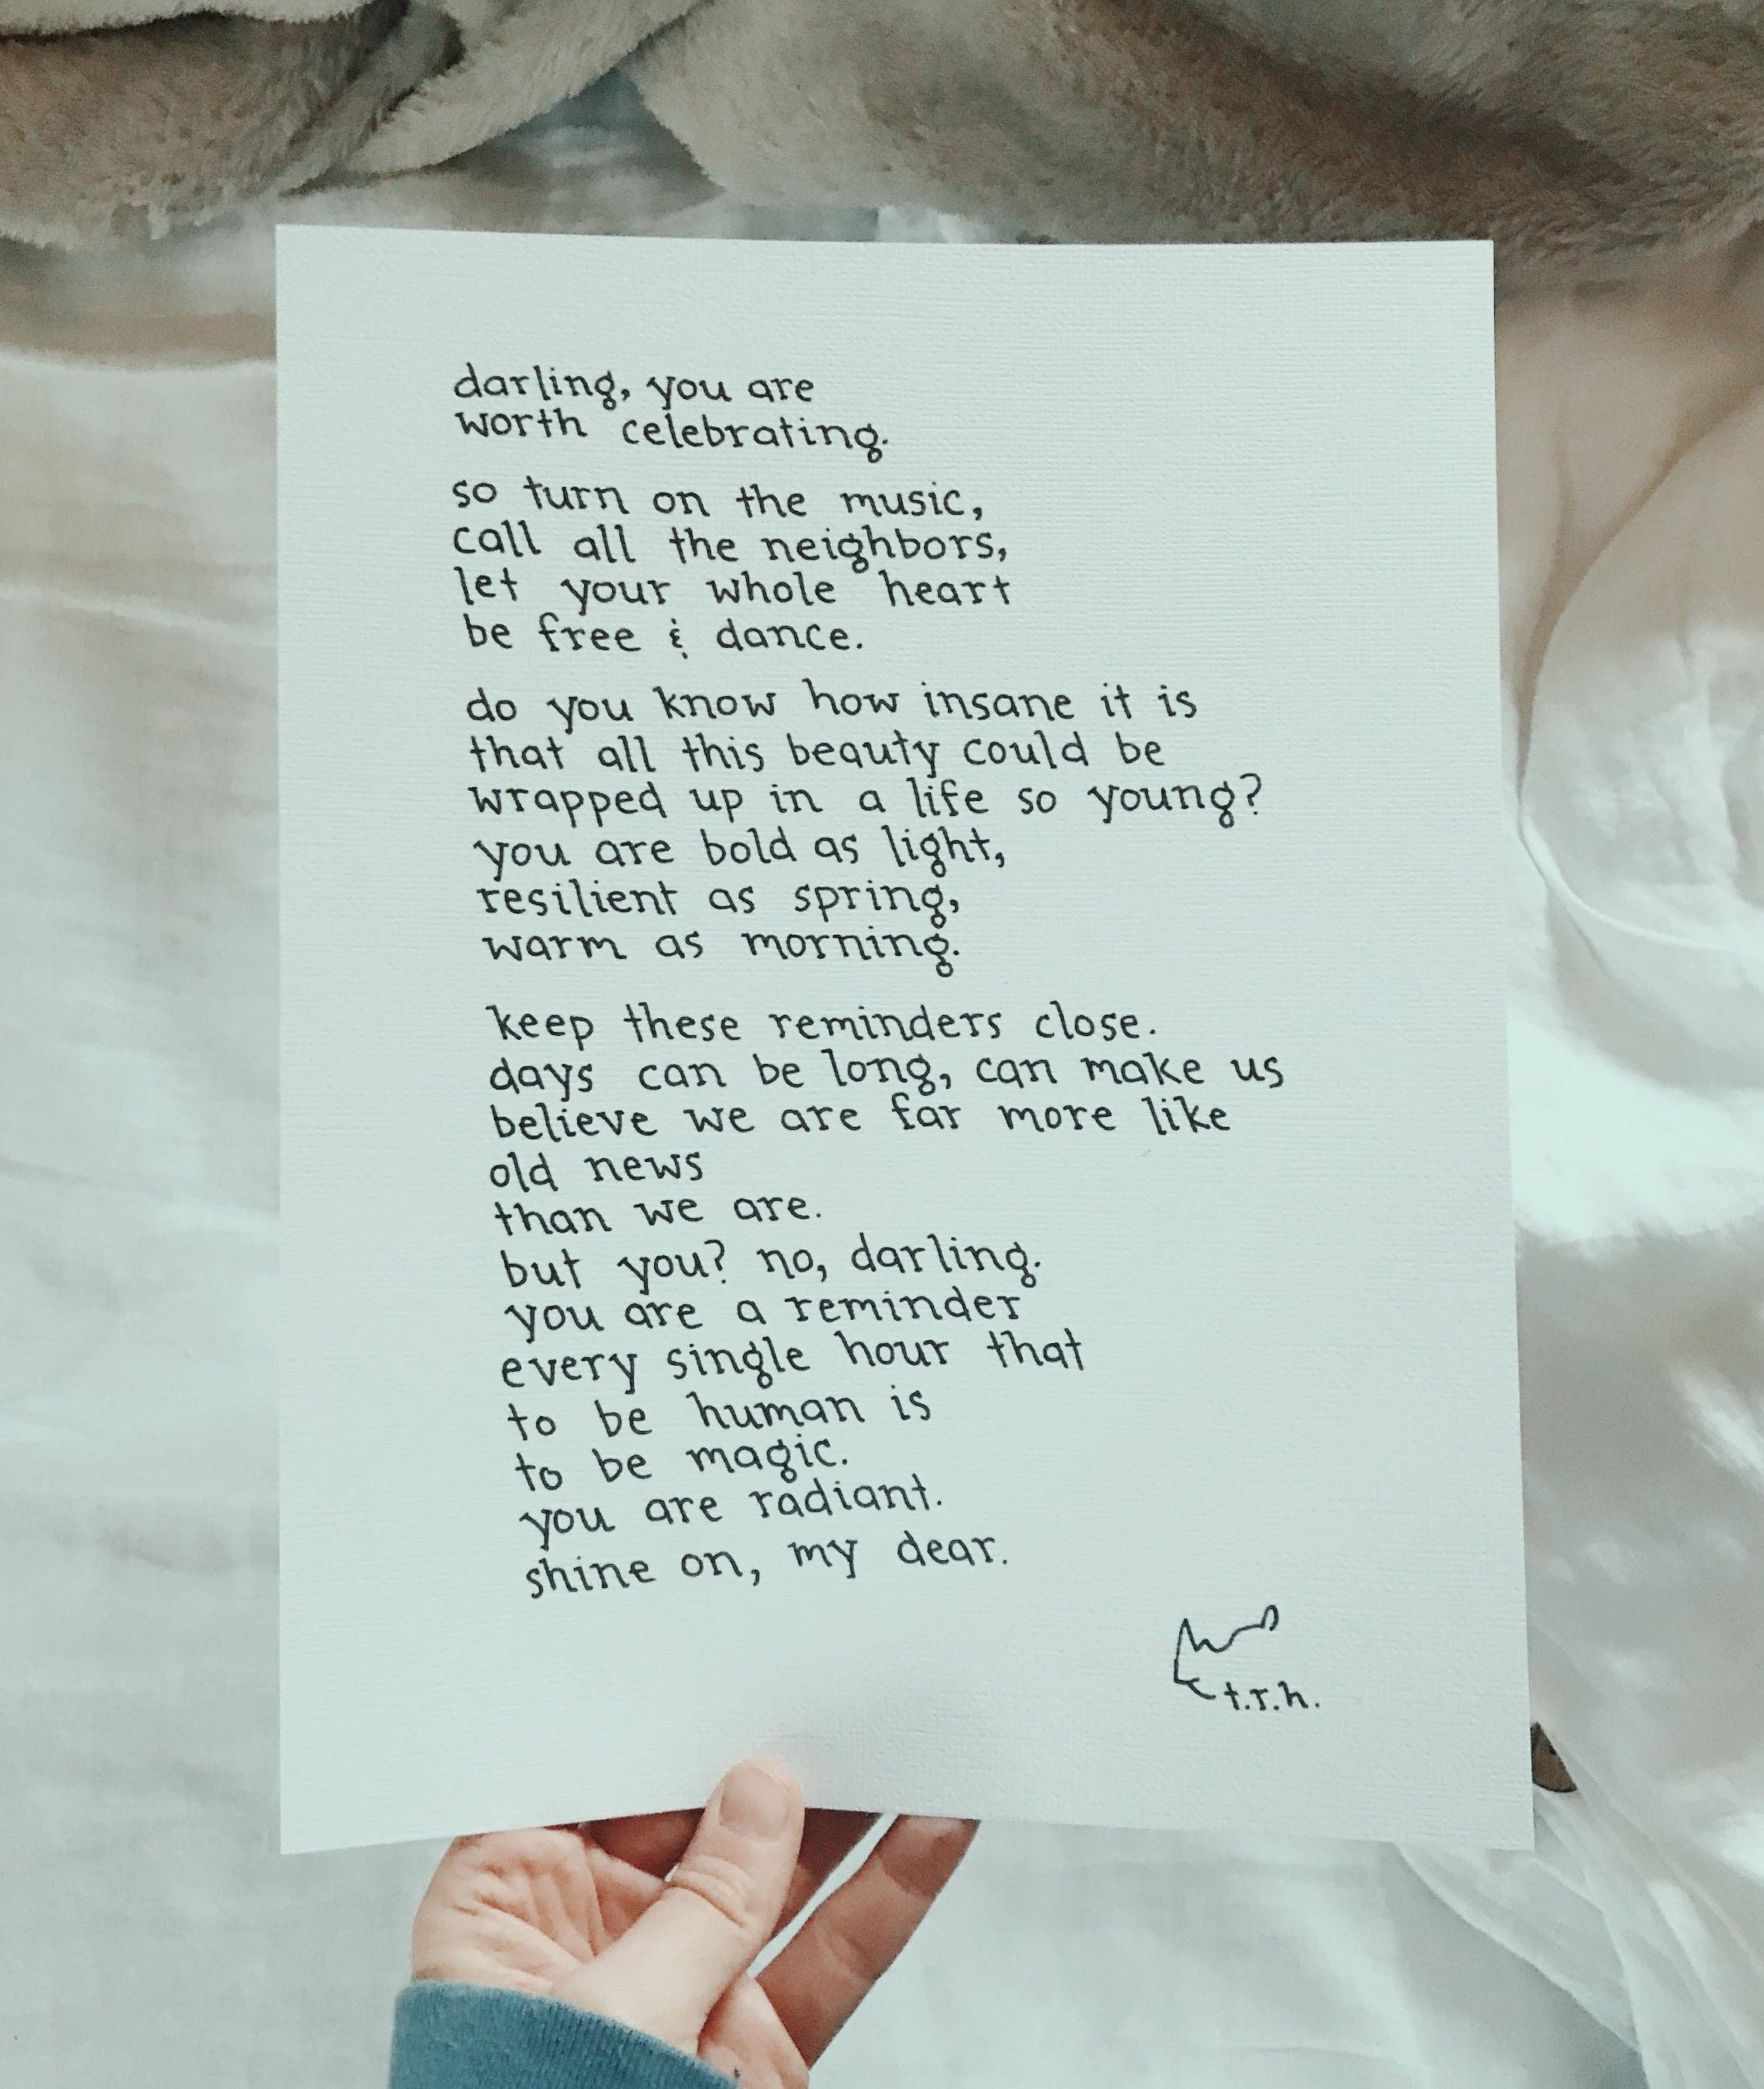 darling, you are
worth celebrating.
so turn on the music,
call all the neighbors,
let your whole heart
be free & dance.
do you know how insane it is
that all this beauty could be
wrapped up in a life so young?
you are bold as light,
resilient as spring,
warm as morning.
keep these reminders close.
days can be long, can make us
believe we are far more like
old news
than we are.
but you? no, darling.
you are a reminder
every single hour that
to be human is
to be magic.
you are radiant.
shine on, my dear.
t.r.h.